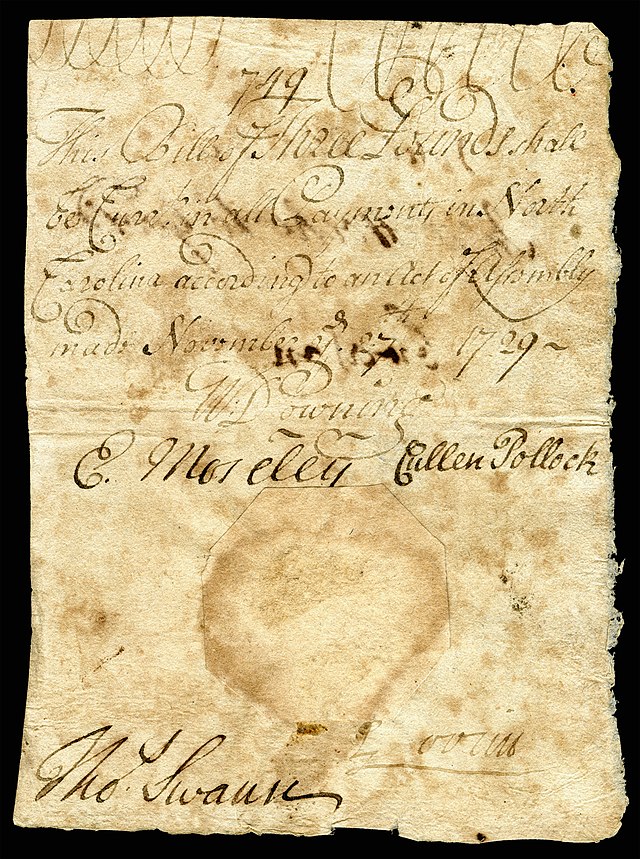 749
This Bill of Three Pounds shall
be Curr.t in all Payments in North
Carolina according to an Act of Assembly
made November ye 27th 1729~
W:Downing
E. Moseley Cullen Pollock
Tho.s Swann